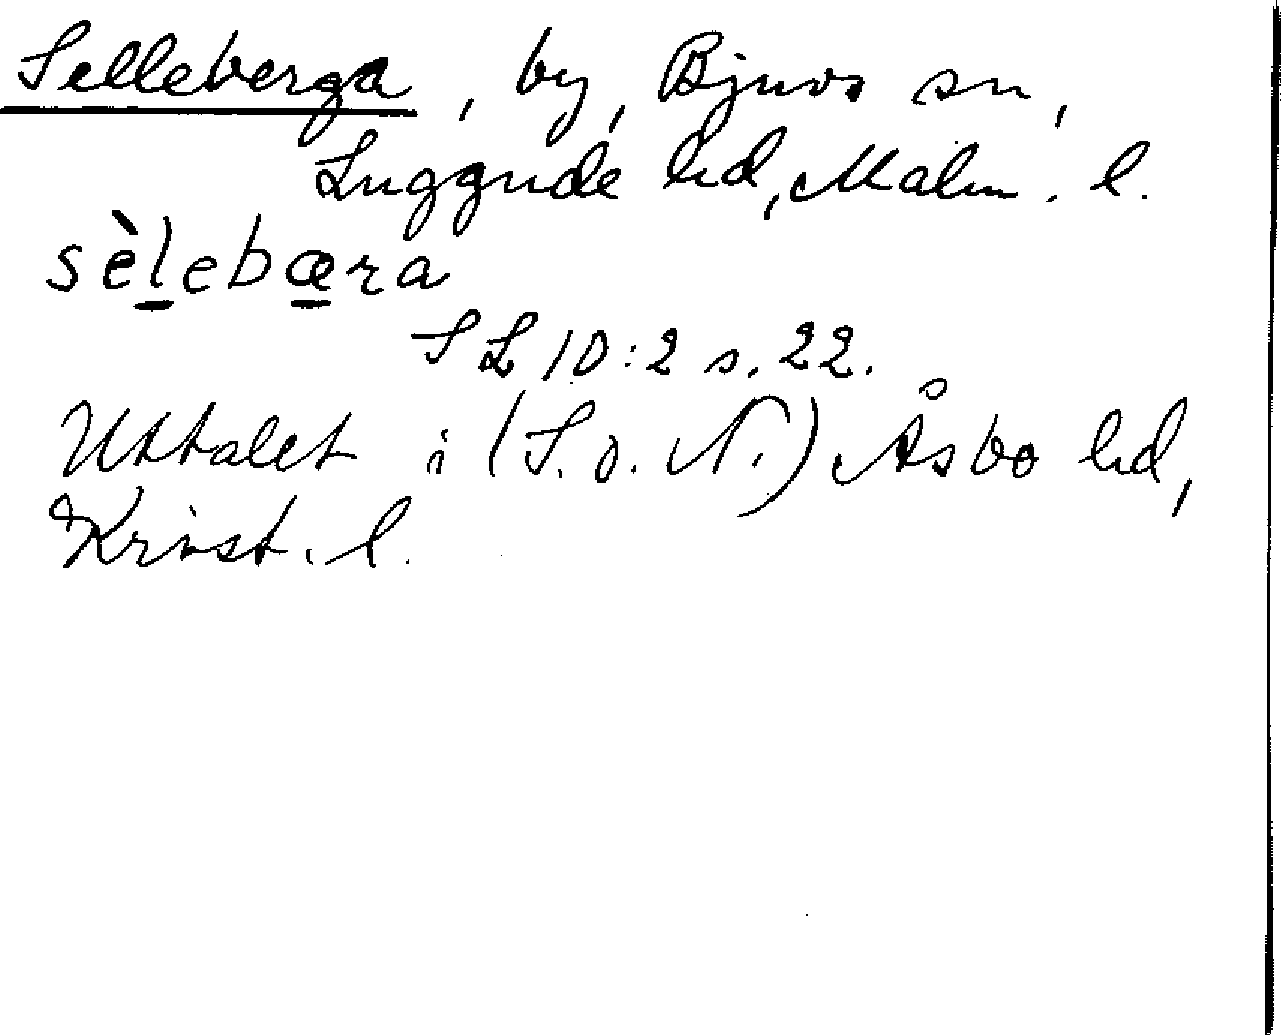 Selleberga, by, Bjuvs sn,
Luggude hd, Malm. l.
sèl̲ebæ̲ra
SL 10:2 s. 22.
Uttalet i (S. o. N.) Åsbo hd,
Krist. l.